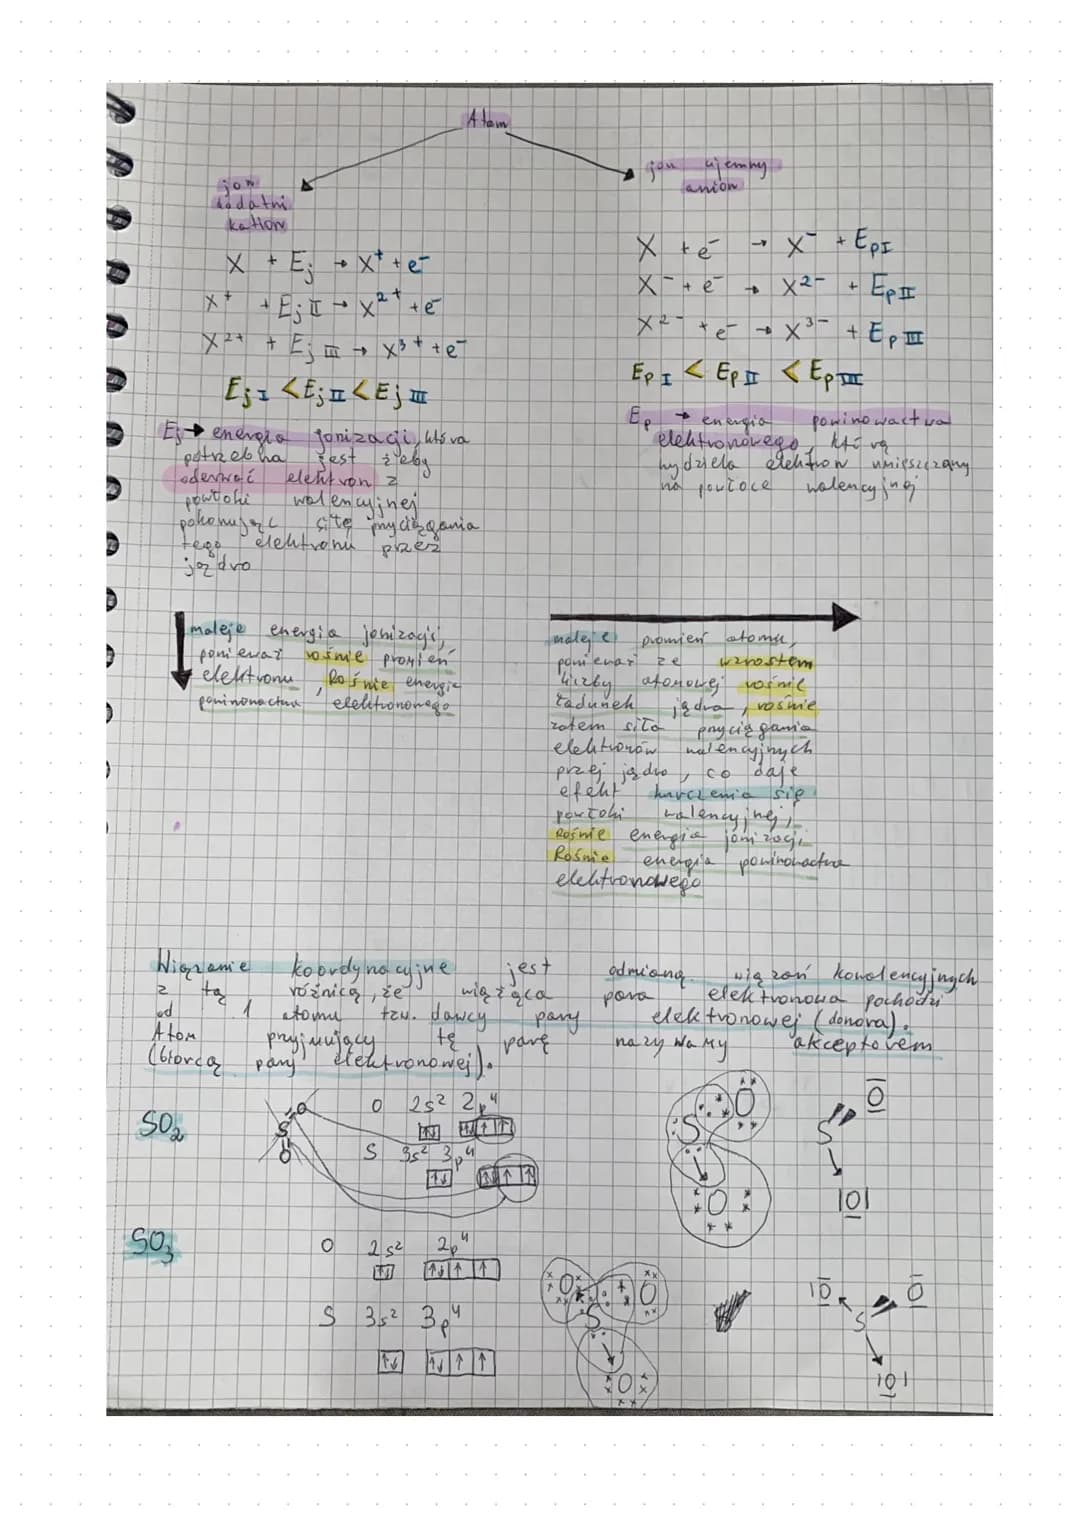 Atom
jon
dodatni
kation
X + Ej → X⁺ + e⁻
X⁺ + Ej II → X²⁺ + e⁻
X²⁺ + Ej III → X³⁺ + e⁻
Ej I < Ej II < Ej III
Ej → energia jonizacji, która
potrzebna jest żeby
oderwać elektron z
powłoki walencyjnej
pokonując siłę przyciągania
tego elektronu przez
jądro
jon ujemny
anion
X + e⁻ → X⁻ + Ep I
X⁻ + e⁻ → X²⁻ + Ep II
X²⁻ + e⁻ → X³⁻ + Ep III
Ep I < Ep II < Ep III
Ep → energia powinowactwa
elektronowego, którą
wydziela elektron umieszczany
na powłoce walencyjnej
maleje energia jonizacji,
ponieważ rośnie promień
elektronu, Rośnie energia
powinowactwa elektronowego
maleje promień atomu,
ponieważ ze wzrostem
liczby atomowej rośnie
ładunek jądra, rośnie
zatem siła przyciągania
elektronów walencyjnych
przej jądro, co daje
efekt kurczenia się
powłoki walencyjnej,
Rośnie energia jonizacji
Rośnie energia powinowactwa
elektronowego
Wiązanie koordynacyjne jest odmianą wiązań kowalencyjnych
z tą różnicą, że wiążąca para elektronowa pochodzi
od 1 atomu tzw. dawcy pary elektronowej (donora).
Atom przyjmujący tę parę nazywamy akceptorem
(biorcą pary elektronowej).
SO₂
O 2s² 2p⁴
S 3s² 3p⁴
S O O
S O O
SO₃
O 2s² 2p⁴
S 3s² 3p⁴
O O S O
O O S O